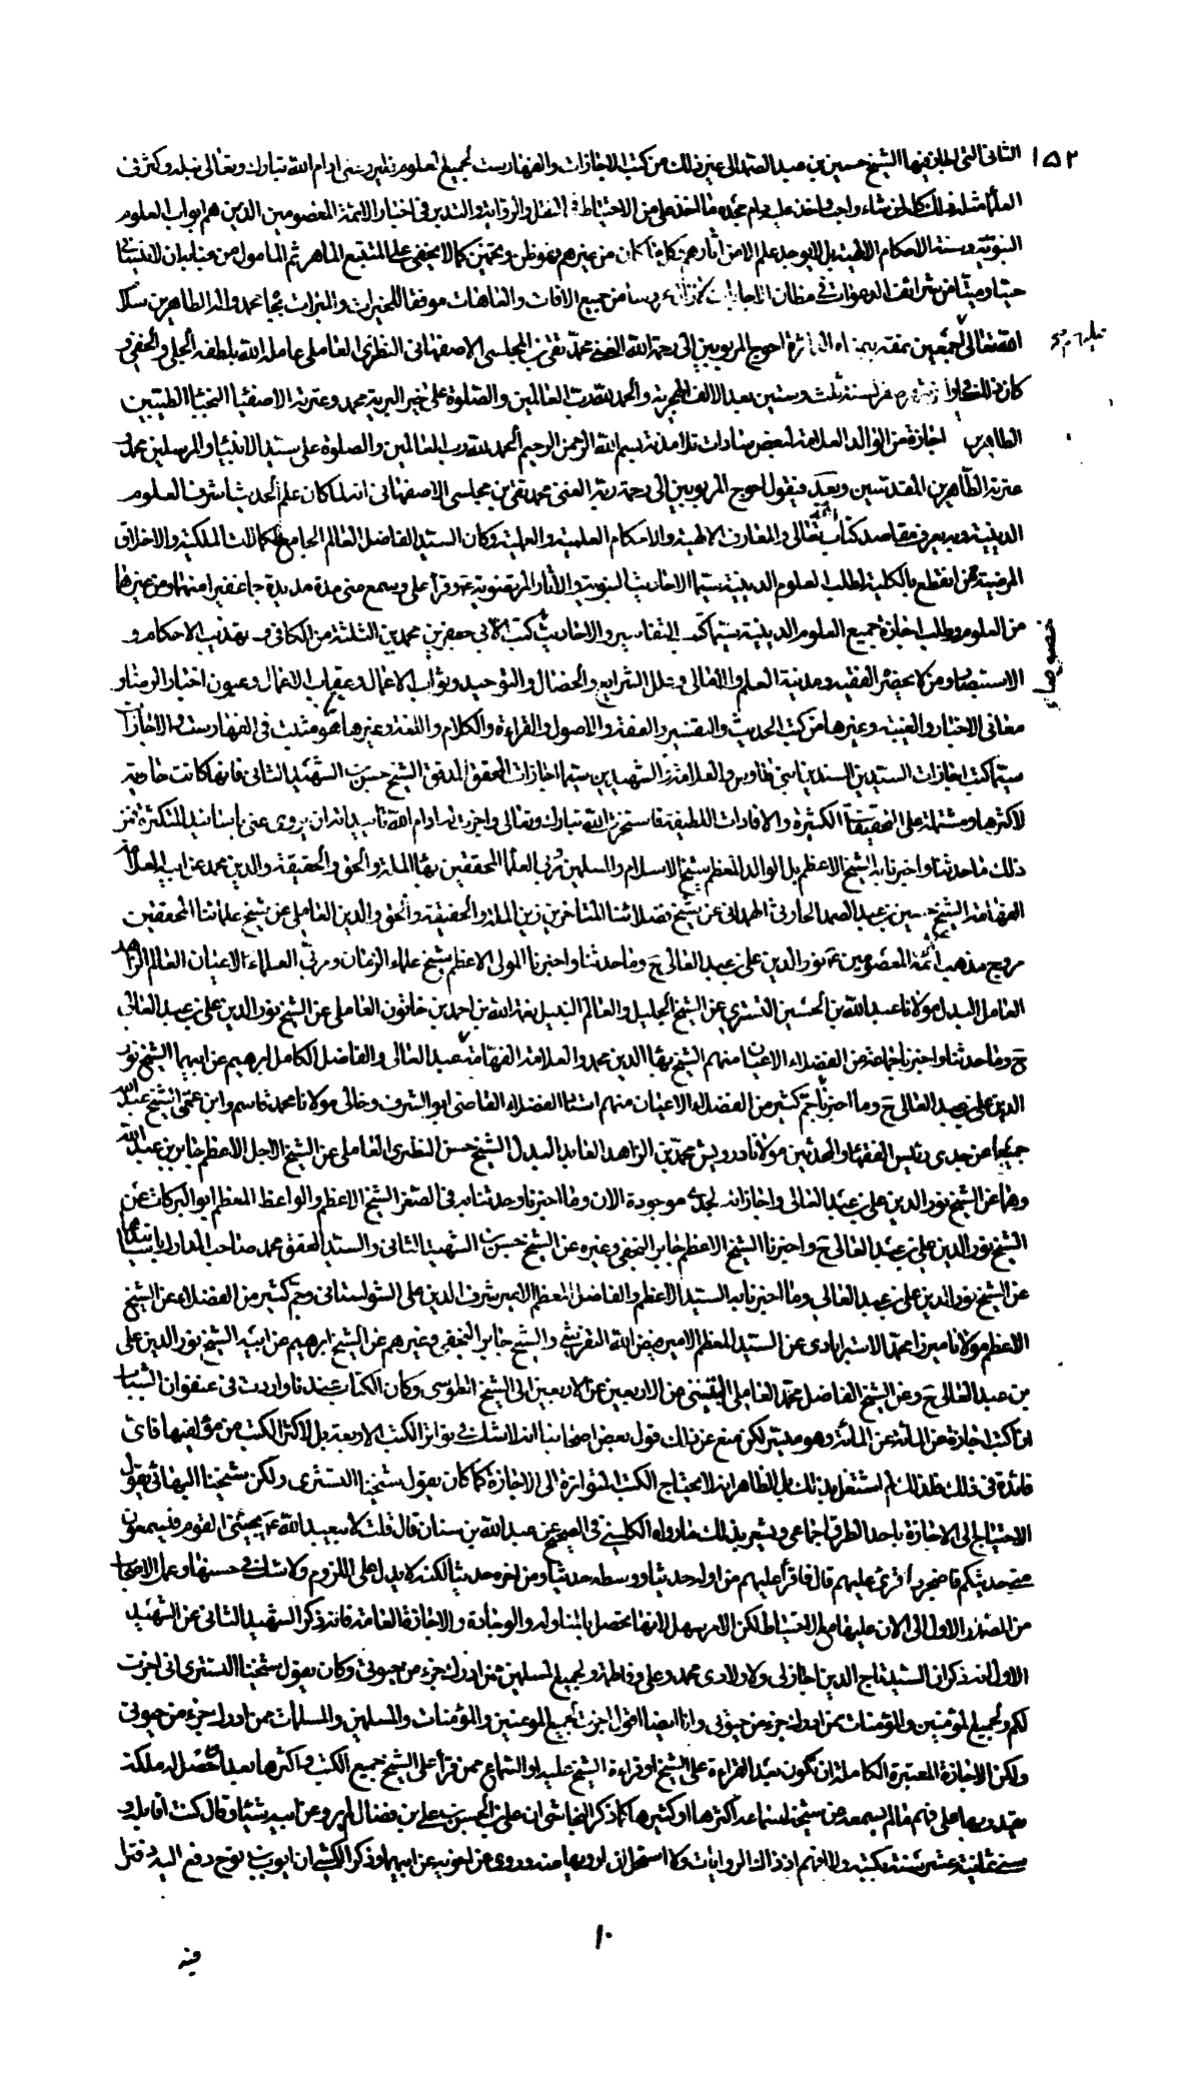 ١٥٢
الثانى التى اجاز فيها الشيخ حسين بن عبد الصمد الى غير ذلك من كتب الاجازات والفهارست لجميع العلوم فليرو عنى ادام الله تبارك وتعالى نبله وكثر فى
العلماء مثله ذلك كله لمن شاء واحب واخذ عليه دام مجده ما اخذ على من الاحتياط فى النقل والرواية والتدبر فى اخبار الائمة المعصومين الذين هم ابواب العلوم
النبوية وسنة الاحكام الالهية بل لا يوجد علم الا من آثارهم كان من غيرهم فهو ظن وتخمين كما لا يخفى على المتتبع الماهر ثم المأمول من جنابه ان لا ينسانى
حيا وميتا من شرائف الدعوات فى مظان الاجابات من جميع الآفات والعاهات موفقا للخيرات والمبرات بجاه محمد وآله الطاهرين سلام
الله تعالى عليهم اجمعين نمقه بيمناه احوج المربوبين الى رحمة الله الغنى محمد تقى بن المجلسى الاصفهانى النطنزى العاملى عامله الله بلطفه الجلى والخفى و
كان ذلك فى اوائل شهر صفر لسنة ثلث وستين بعد الالف الهجرية والحمد لله رب العالمين والصلوة على خير البرية محمد وعترته الاصفياء النجباء الطيبين
الطاهرين اجازة من الوالد العلامة لبعض سادات تلامذته بسم الله الرحمن الرحيم الحمد لله رب العالمين والصلوة على سيد الانبياء والمرسلين محمد و
عترته الطاهرين المقدسين وبعد فيقول احوج المربوبين الى رحمة ربه الغنى محمد تقى بن مجلسى الاصفهانى انه لما كان علم الحديث اشرف العلوم
الدينية وبه يعرف مقاصد كتاب الله تعالى والمعارف الالهية والاحكام العلمية والعملية وكان السيد الفاضل العالم الجامع للكمالات الملكية والاخلاق
المرضية ممن انقطع بالكلية لطلب العلوم الدينية سيما الاحاديث النبوية والآثار المرتضوية وقرأ على وسمع منى مدة مديدة جما غفيرا منها ومن غيرها
من العلوم وطلب اجازة جميع العلوم الدينية سيما كتب التفاسير والاحاديث كتب لابى جعفرين محمدين الثلثة من الكافى وتهذيب الاحكام و
الاستبصار ومن لا يحضره الفقيه ومدينة العلم والامالى وعلل الشرايع والخصال والتوحيد وثواب الاعمال وعقاب الاعمال وعيون اخبار الرضا و
معانى الاخبار والغيبة وغيرها من كتب الحديث والتفسير والفقه والاصول والقراءة والكلام واللغة وغيرها مما هو مثبت فى الفهارست والاجازات
سيما كتب اجازات السيدين السندين ابنى طاوس والعلامة والشهيدين سيما اجازات المحقق المدقق الشيخ حسن بن الشهيد الثانى فانها كانت حاوية
لاكثرها ومشتملة على التحقيقات الكثيرة والافادات اللطيفة فاستخرت الله تبارك وتعالى واجزت له ادام الله تأييداته ان يروى عنى باسانيد المتكثرة فمن
ذلك ما حدثنا واخبرنا به الشيخ الاعظم بل الوالد المعظم شيخ الاسلام والمسلمين مربى العلماء المحققين بهاء الملة والحق والحقيقة والدين محمد عن ابيه العلامة
الفهامة الشيخ حسين بن عبد الصمد الحارثى الهمدانى عن شيخ فضلائنا المتأخرين زين الملة والحقيقة والحق والدين العاملى عن شيخ علمائنا المحققين
مروج مذهب الائمة المعصومين نور الدين على بن عبد العالى ح وما حدثنا واخبرنا المولى الاعظم شيخ علماء الزمان ومربى العلماء الاعيان العالم الزاهد
العامل البدل مولانا عبد الله بن الحسين التسترى عن الشيخ الجليل والعالم النبيل نعمة الله بن احمد بن خاتون العاملى عن الشيخ نور الدين على بن عبد العالى
ح وما حدثنا واخبرنا جماعة من الفضلاء الاعيان منهم الشيخ بهاء الدين محمد والعلامة الفهامة عبد العالى والفاضل الكامل ابرهيم عن ابيهما الشيخ نور
الدين على بن عبد العالى ح وما اخبرنا جم كثير من الفضلاء الاعيان منهم استاد الفضلاء القاضى ابو الشرف وخالى مولانا محمد قاسم وابن عمتى الشيخ عبد الله
جميعا عن جدى رئيس الفقهاء والمحدثين مولانا درويش محمد بن الزاهد العابد البدل الشيخ حسن النطنزى العاملى عن الشيخ الاجل الاعظم جابر بن عبد الله
وهما عن الشيخ نور الدين على بن عبد العالى واجازاته لجدى موجودة الان وما اخبرنا وحدثنا به فى الصغر الشيخ الاعظم والواعظ المعظم ابو البركات عن
الشيخ نور الدين على بن عبد العالى ح واخبرنا الشيخ الاعظم جابر النجفى وغيره عن الشيخ حسن بن الشهيد الثانى والسيد المحقق محمد صاحب المدارك باسنادهما
عن الشيخ نور الدين على بن عبد العالى وما اخبرنا به السيد الاعظم والفاضل المعظم الامير شرف الدين على الشولستانى وجم كثير من الفضلاء عن الشيخ
الاعظم مولانا ميرزا محمد الاسترابادى عن السيد المعظم الامير فيض الله التفرشى والشيخ جابر النجفى وغيرهم عن الشيخ ابرهيم عن ابيه الشيخ نور الدين على
بن عبد العالى ح وعن الشيخ الفاضل محمد العاملى التبنينى من الاربعين عن الاربعين الى الشيخ الطوسى وكان الكتاب عندنا واردت فى عنفوان الشباب
ان اكتب اجازة عن المائة عن المائة وهو ميسر لكن منع عن ذلك قول بعض اصحابنا انه لا شك فى تواتر الكتب الاربعة بل لاكثر الكتب من مؤلفيها فاى
فائدة فى ذلك فلذلك لم اشتغل بذلك بل الظاهر انه لا يحتاج الكتب المتواترة الى الاجازة كما كان يقول شيخنا التسترى ولكن شيخنا البهائى يقول
الاحتياج الى الاجازة باحد الطرق اجماعى ويشير بذلك ما رواه الكلينى فى الصحيح عن عبد الله بن سنان قال قلت لابى عبد الله ع يجيئنى القوم فيسمعون
منى حديثكم فاضجر ولا اقوى عليهم قال فاقرأ عليهم من اوله حديثا ومن وسطه حديثا ومن آخره حديثا لكنه لا يدل على اللزوم ولا شك فى حسنها وعمل الاصحاب
من الصدر الاول الى الان عليها مع الاحتياط لكن الامر سهل لانها تحصل بالمناولة والوجادة والاجازة العامة فانه ذكر الشهيد الثانى عن الشهيد
الاول انه ذكر ان السيد تاج الدين اجاز لى ولاولادى محمد وعلى وفاطمة ولجميع المسلمين ممن ادرك جزء من حيوتى وكان يقول شيخنا التسترى انى اجزت
لكم ولجميع المؤمنين والمؤمنات ممن ادرك جزء من حيوتى وانا ايضا اقول اجزت لجميع المؤمنين والمؤمنات والمسلمين والمسلمات ممن ادرك جزء من حيوتى
ولكن الاجازة المعتبرة الكاملة ان تكون بعد القراءة على الشيخ او قراءة الشيخ عليه او السماع ممن قرأ على الشيخ جميع الكتب او اكثرها بعد ان حصل له ملكة
يقتدر بها على فهم ما لم يسمعه من شيخه لسماعه اكثرها او كثيرها كما ذكر النجاشى ان على بن الحسن بن على بن فضال لم يرو عن ابيه شيئا وقال كنت اقابله و
سنى ثمانية عشر سنة بكتبه ولا افهم اذ ذاك الروايات ولا استحل ان ارويها عنه وروى عن اخويه عن ابيهما وذكر الكشى ان ايوب بن نوح دفع اليه دفترا
خصوصا
١٠
فيه